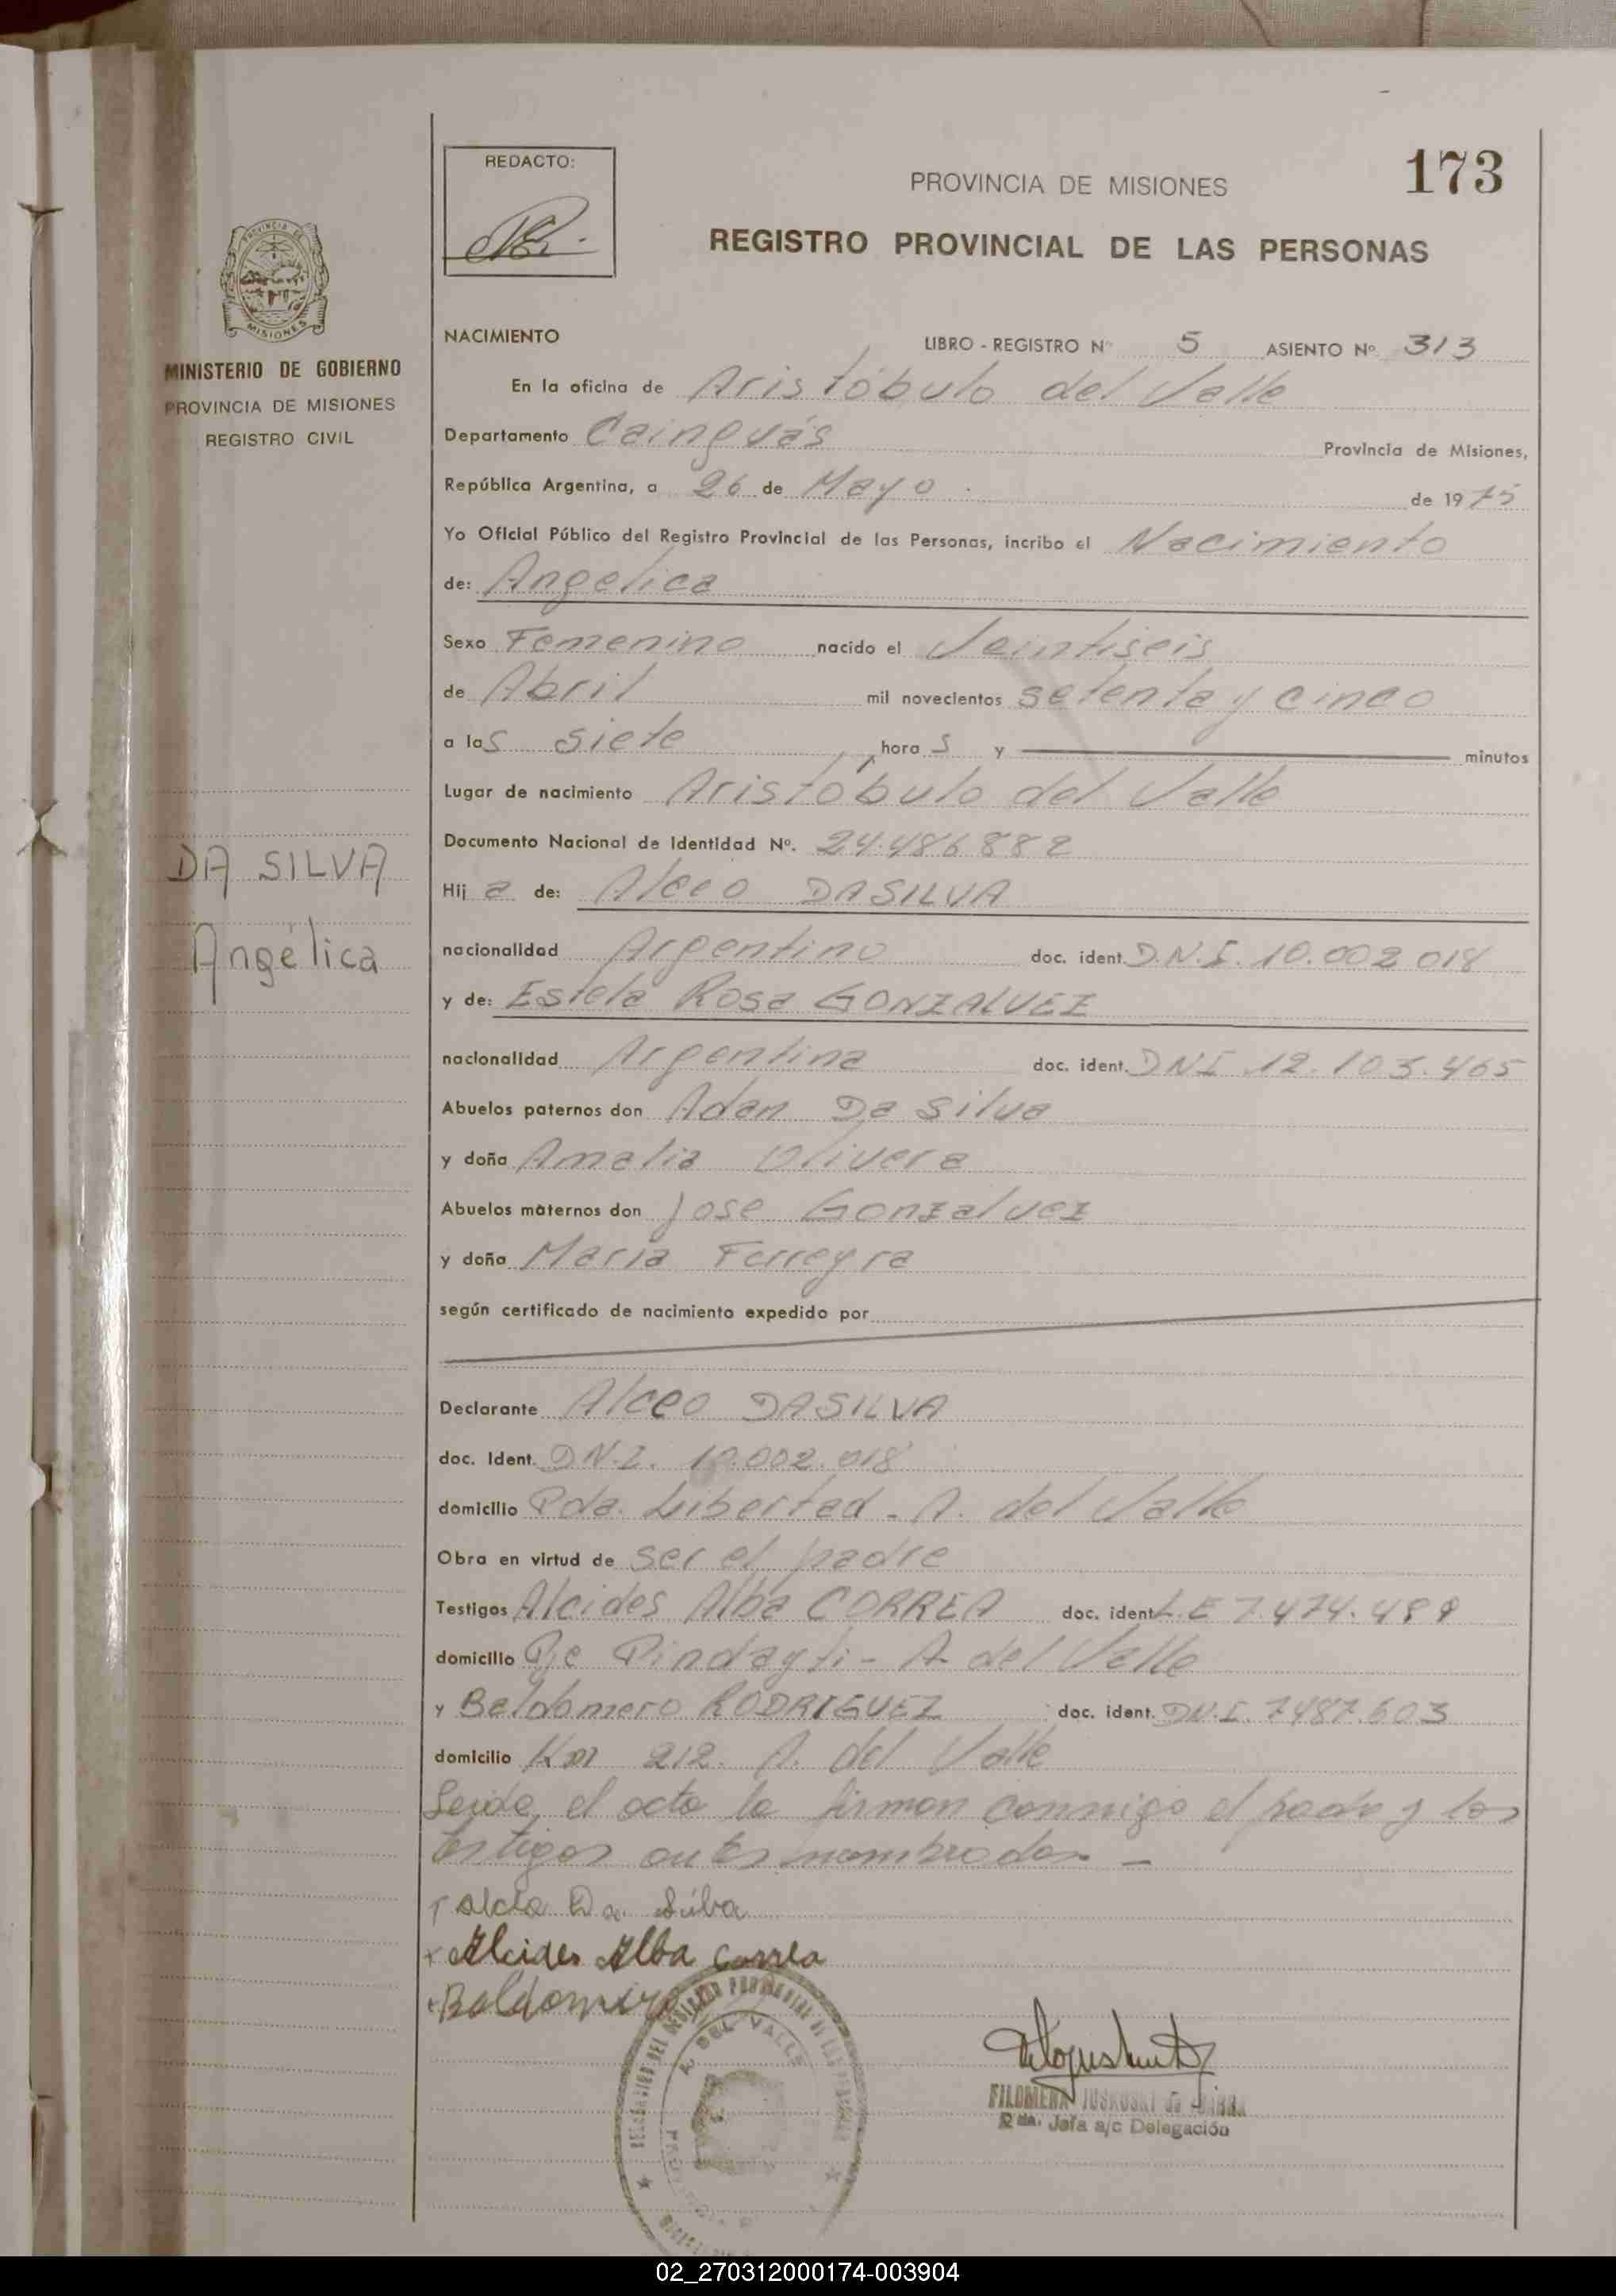 173
REDACTO:
PROVINCIA DE MISIONES
REGISTRO PROVINCIAL DE LAS PERSONAS
PROVINCIA DE
MISIONES
MINISTERIO DE GOBIERNO
PROVINCIA DE MISIONES
REGISTRO CIVIL
DA SILVA
Angélica
NACIMIENTO LIBRO - REGISTRO Nº 5 ASIENTO Nº 313
En la oficina de Aristóbulo del Valle
Departamento Cainguás Provincia de Misiones,
República Argentina, a 26 de Mayo. de 1975
Yo Oficial Público del Registro Provincial de las Personas, incribo el Nacimiento
de: Angelica
Sexo Femenino nacido el Veintiseis
de Abril mil novecientos setenta y cinco
a las siete horas y minutos
Lugar de nacimiento Aristóbulo del Valle
Documento Nacional de Identidad Nº. 24.486882
Hija de: Alceo DASILVA
nacionalidad Argentino doc. ident. D.N.I. 10.002 018
y de: Estela Rosa GONZALVEZ
nacionalidad Argentina doc. ident. DNI 12.103.465
Abuelos paternos don Adan Da Silva
y doña Amalia Olivera
Abuelos maternos don Jose Gonzalvez
y doña Maria Ferreyra
según certificado de nacimiento expedido por
Declarante Alceo DASILVA
doc. Ident. D.N.I. 10.002.018
domicilio Pda. Libertad - A. del Valle
Obra en virtud de ser el padre
Testigos Alcides Alba CORREA doc. ident. L.E 7.474.499
domicilio Pje Pindayti - A del Valle
y Baldomero RODRIGUEZ doc. ident. DN.I. 7487.603
domicilio Km 212. A. del Valle
Leida el acta la firman conmigo el padre y los
testigos antes nombrados. -
Alceo Da Silva
Alcides Alba Correa
Baldomero
DELEGACION DEL REGISTRO PROVINCIAL DE LAS PERSONAS
A. DEL VALLE
FILOMENA JUSKUSKI de IBARRA
2da. Jefa a/c Delegación
02_270312000174-003904